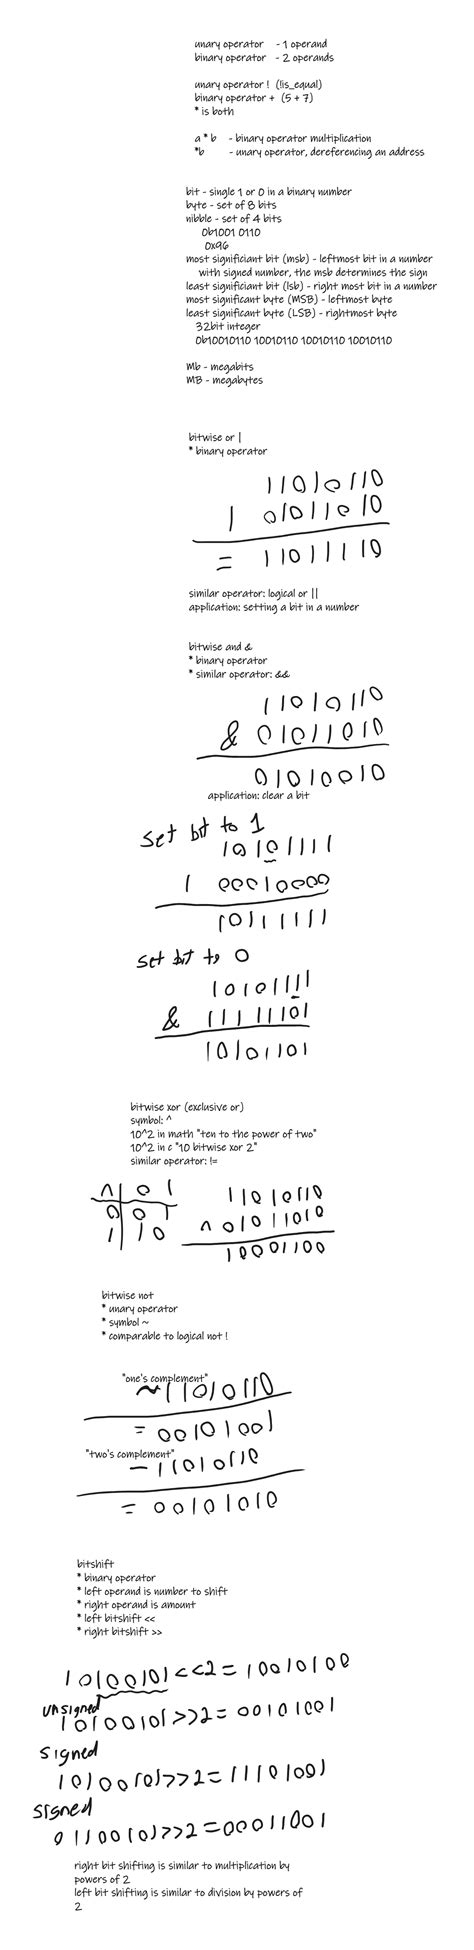 unary operator - 1 operand
binary operator - 2 operands
unary operator ! (!is_equal)
binary operator + (5 + 7)
* is both
a * b - binary operator multiplication
*b - unary operator, dereferencing an address
bit - single 1 or 0 in a binary number
byte - set of 8 bits
nibble - set of 4 bits
0b1001 0110
0x96
most significiant bit (msb) - leftmost bit in a number
with signed number, the msb determines the sign
least significiant bit (lsb) - right most bit in a number
most significant byte (MSB) - leftmost byte
least significant byte (LSB) - rightmost byte
32bit integer
0b10010110 10010110 10010110 10010110
Mb - megabits
MB - megabytes
bitwise or |
* binary operator
11010110
| 01011010
= 11011110
similar operator: logical or ||
application: setting a bit in a number
bitwise and &
* binary operator
* similar operator: &&
11010110
& 01011010
01010010
application: clear a bit
set bit to 1
10101111
| 00010000
10111111
set bit to 0
10101111
& 11111101
10101101
bitwise xor (exclusive or)
symbol: ^
10^2 in math "ten to the power of two"
10^2 in c "10 bitwise xor 2"
similar operator: !=
^ 0 1
0 0 1
1 1 0
11010110
^ 01011010
10001100
bitwise not
* unary operator
* symbol ~
* comparable to logical not !
"one's complement"
~11010110
= 00101001
"two's complement"
- 11010110
= 00101010
bitshift
* binary operator
* left operand is number to shift
* right operand is amount
* left bitshift <<
* right bitshift >>
10100101<<2=10010100
unsigned
10100101>>2=00101001
signed
10100101>>2=11101001
signed
01100101>>2=00011001
right bit shifting is similar to multiplication by
powers of 2
left bit shifting is similar to division by powers of
2